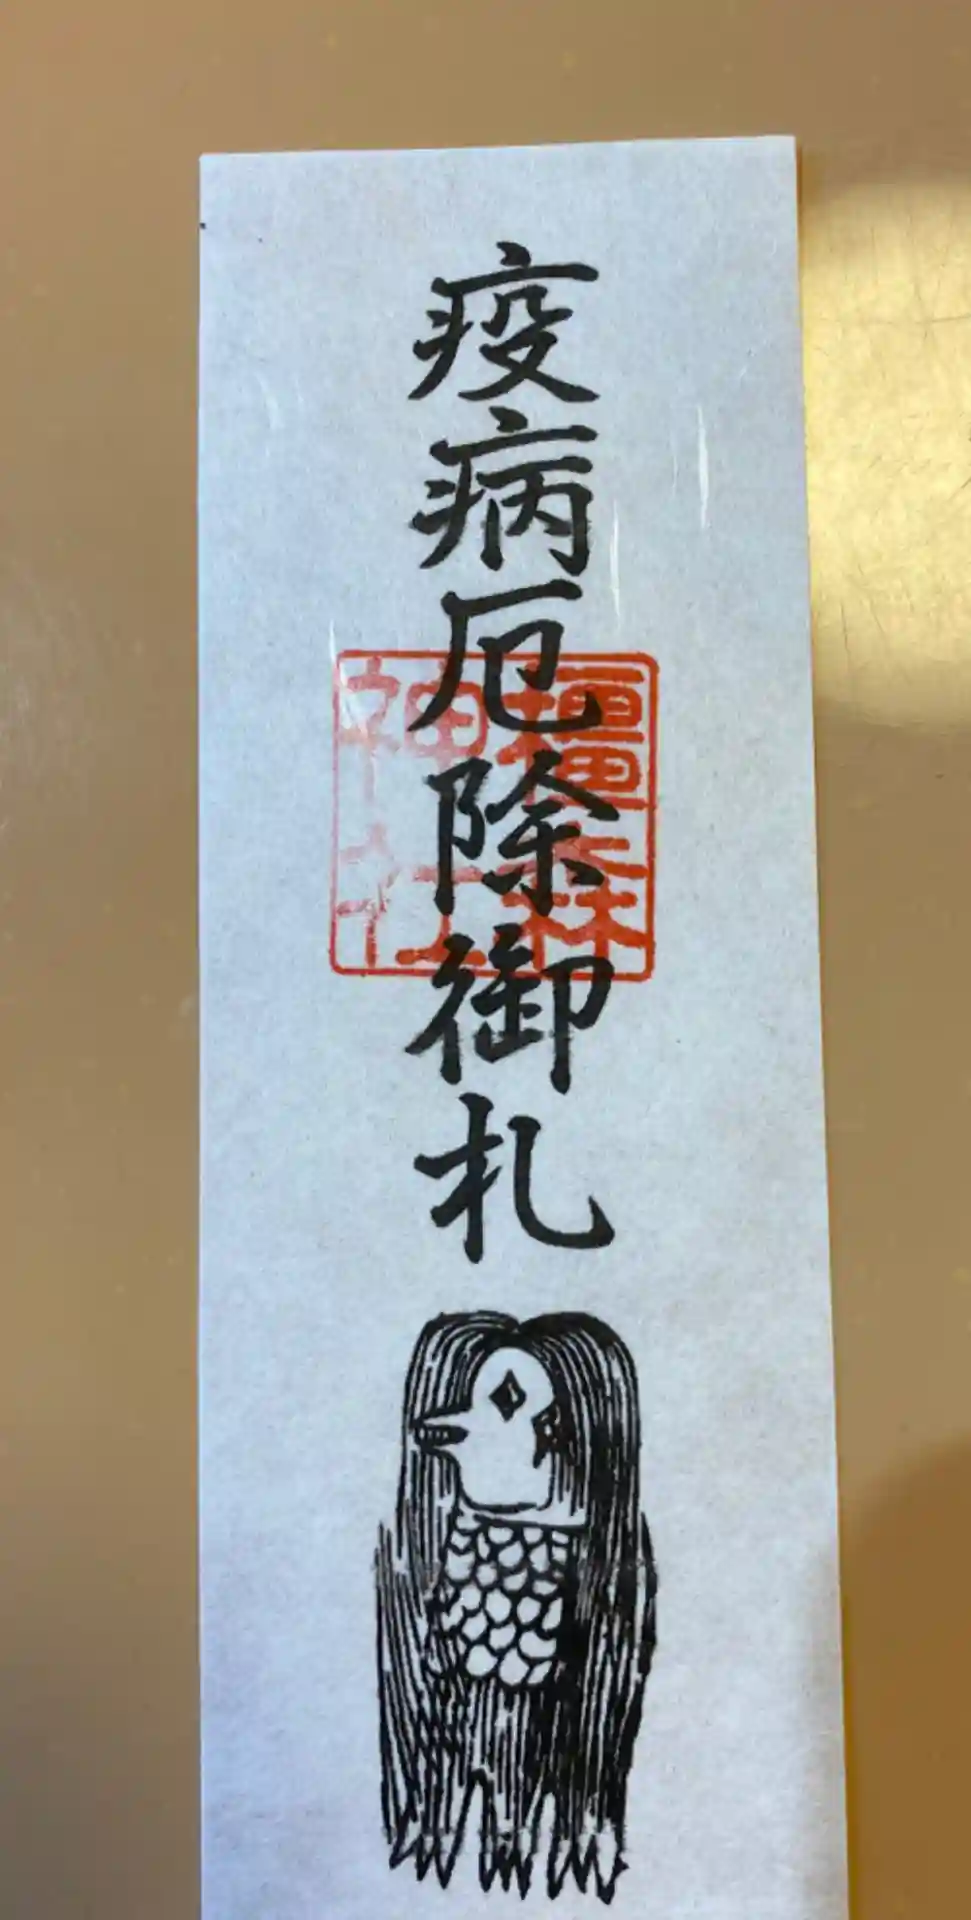 疫病厄除御札
橿森
神社